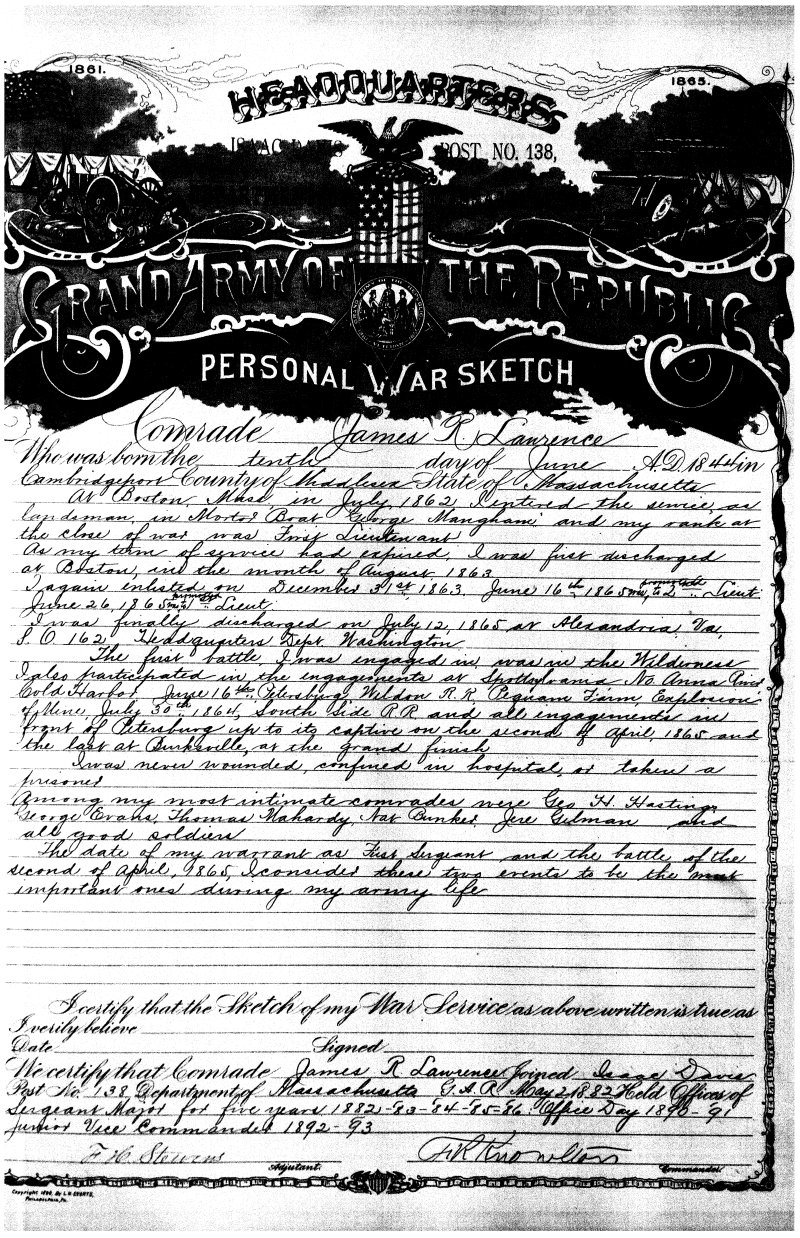 1861.
1865.
HEADQUARTERS
ISAAC DAVIS POST NO. 138,
GRAND ARMY OF THE REPUBLIC
PERSONAL WAR SKETCH
Comrade James R. Lawrence
Who was born the tenth day of June A.D. 1844 in
Cambridgeport County of Middlesex State of Massachusetts
At Boston, Mass. in July, 1862 I entered the service, as
landsman, in Mortar Boat "George Mangham" and my rank at
the close of war was First Lieutenant
As my term of service had expired, I was first discharged
at Boston, in the month of August, 1863
I again enlisted on December 31st 1863. June 16th 1865 was promoted to 2nd Lieut
June 26, 1865 promoted 1st Lieut.
I was finally discharged on July 12, 1865 at Alexandria Va,
S. O 162 Headquarters Dept Washington
The first battle I was engaged in, was in the Wilderness
I also participated in the engagements at Spottsylvania No Anna River
Cold Harbor June 16th Petersburg Weldon R.R. Pegram Farm, Explosion
of Mine, July 30th 1864, South Side R.R and all engagements in
front of Petersburg up to its captive on the second of April, 1865 and
the last at Burksville, at the grand finish
I was never wounded, confined in hospital, or taken a
prisoner
Among my most intimate comrades were Geo H. Hastings
George Evans, Thomas Mahardy, Nat Bunker, Jere Gilman and
all good soldiers
The date of my warrant as First Sergeant and the battle of the
second of April, 1865, I consider these two events to be the most
important ones during my army life
I certify that the Sketch of my War Service as above written is true as
I verily believe
Date Signed
We certify that Comrade James R Lawrence Joined Isaac Davis
Post No. 138 Department of Massachusetts G.A.R. May 2, 1882 Held Offices of
Sergeant Major for five years 1882-83-84-85-86. Office Day 1890-91
Junior Vice Commander 1892-93
F H Stevens
Adjutant.
Commander
Copyright 1890, By L.H. EVERTS,
PHILADELPHIA, PA.